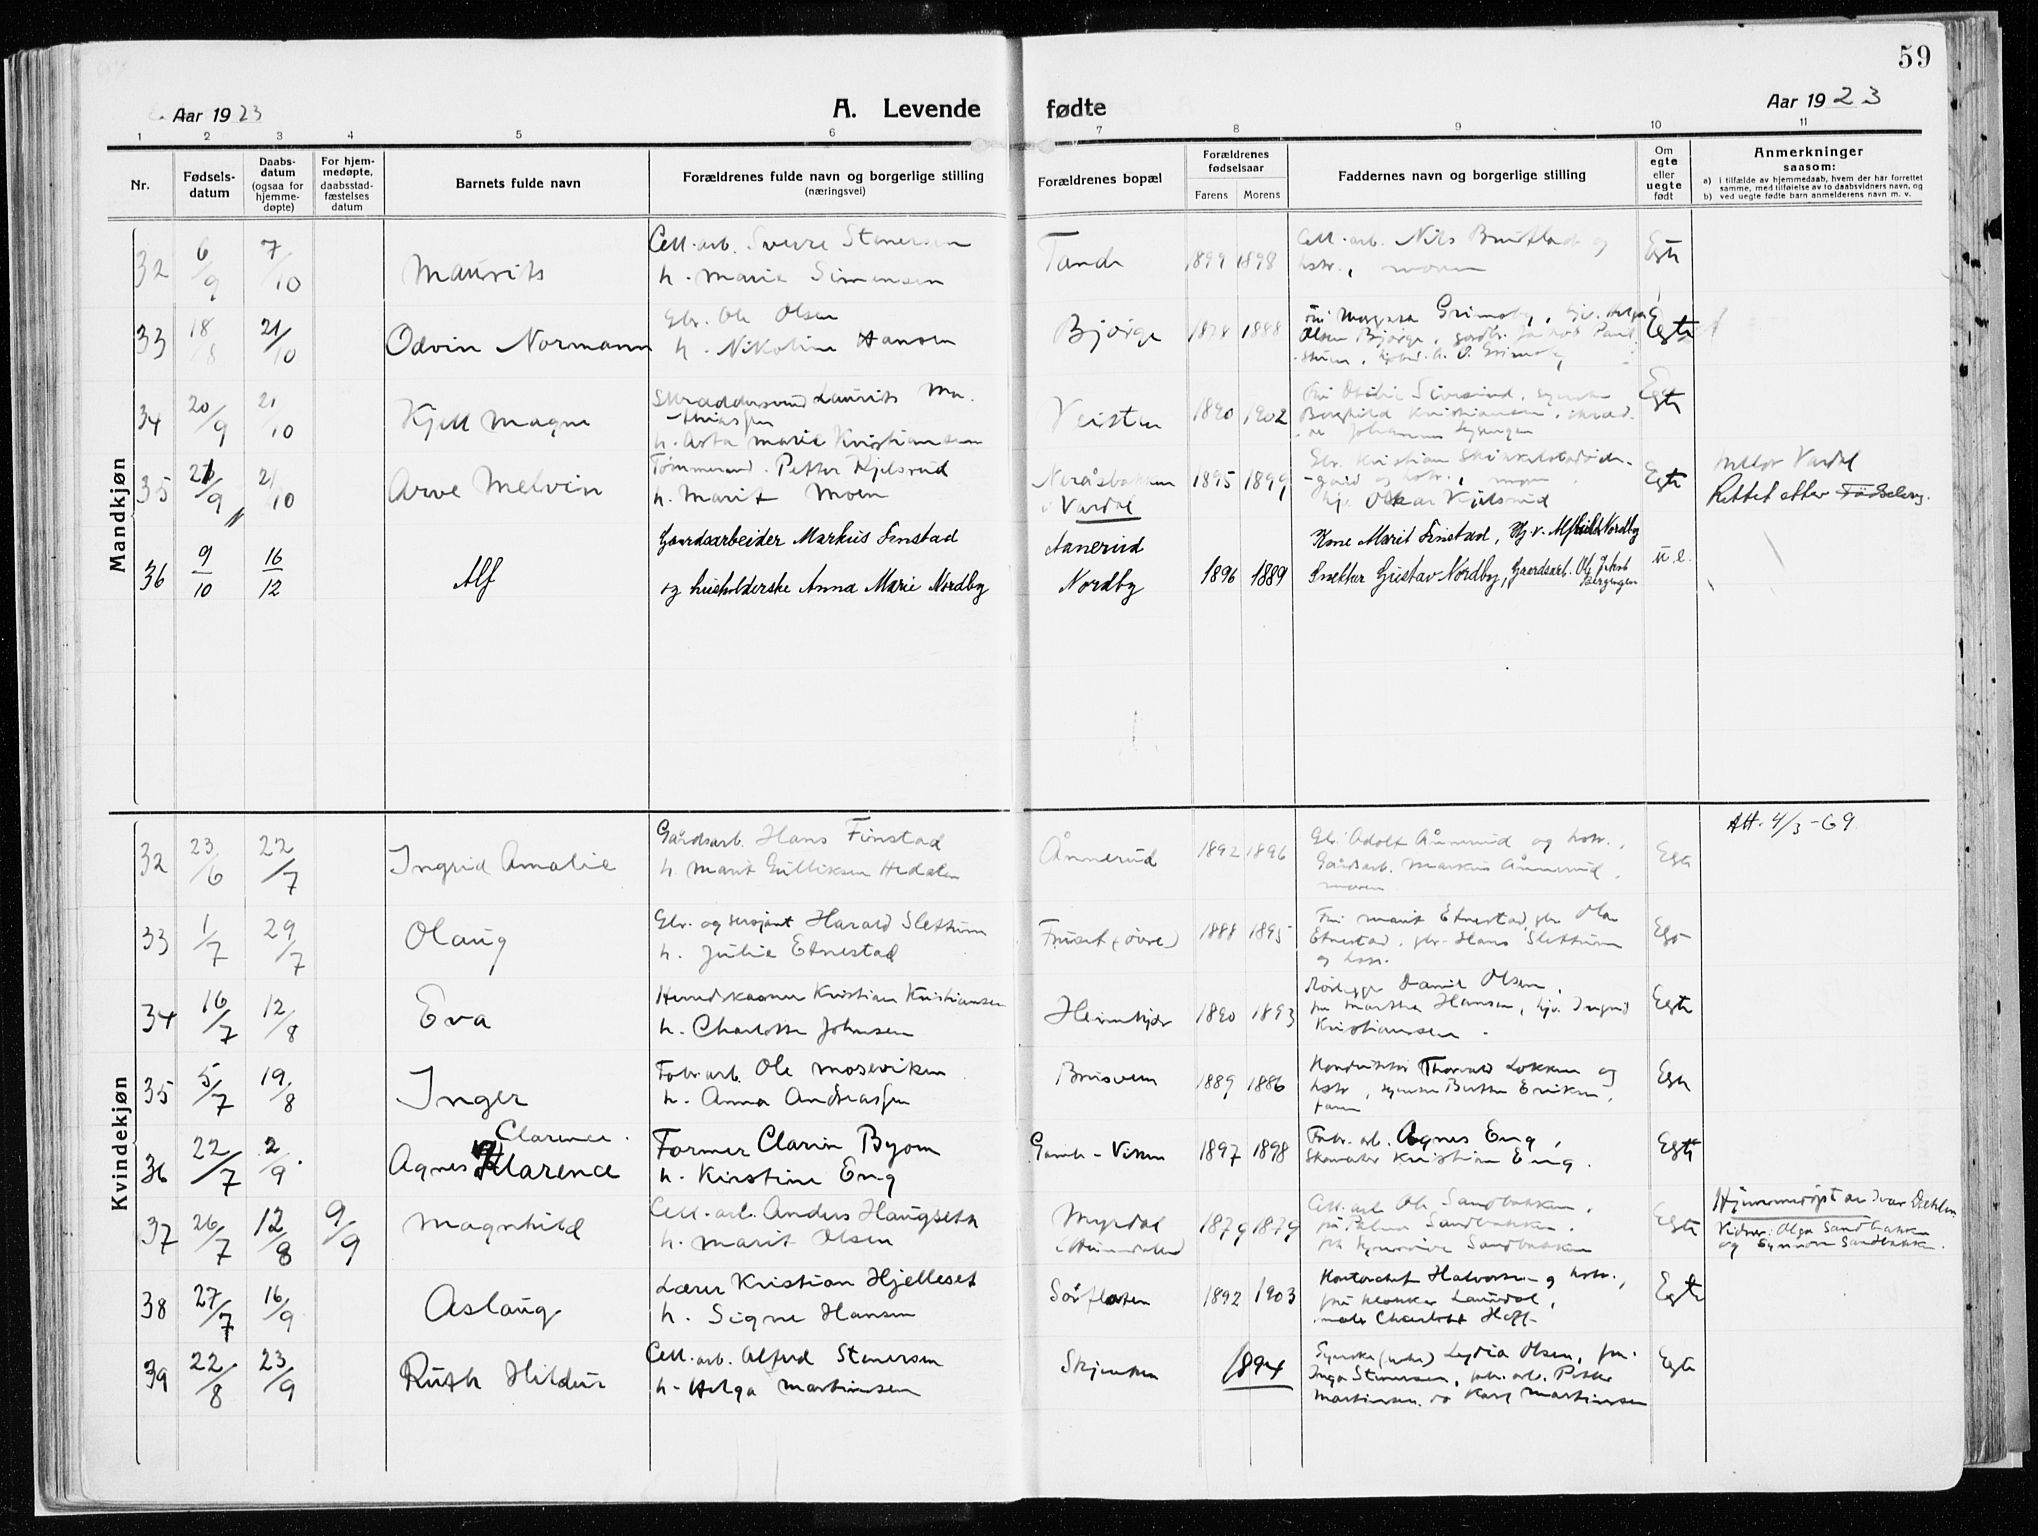 59
Aar 1923
A. Levende fødte
Aar 1923
1 2 3 4 5 6 7 8 9 10 11
Nr.
Fødsels-
datum
Daabs-
datum
(ogsaa for
hjemme-
døpte)
For hjem-
medøpte,
daabsstad-
fæstelses
datum
Barnets fulde navn
Forældrenes fulde navn og borgerlige stilling
(næringsvei)
Forældrenes bopæl
Forældrenes
fødselsaar
Farens Morens
Faddernes navn og borgerlige stilling
Om
egte
eller
uegte
født
Anmerkninger
saasom:
a) i tilfælde av hjemmedaab, hvem der har forrettet
samme, med tilføielse av to daabsvidners navn, og
b) ved uegte fødte barn anmelderens navn m. v.
Mandkjøn
32 6/9 7/10 Maurits
Cell. arb. Sverre Stenersen
h. Marie Simensen
Tande 1899 1898
Cell. arb. Nils og
hstr., moren
Egte
33 18/8 21/10 Odvin Normann
Gbr. Ole Olsen
h. Nikoline Hansen
Bjørge 1878 1888
Olsen Bjørge,
Egte
34 20/9 21/10 Kjell Magne
Skræddersvend Laurits Ma-
-thiassen
h. Asta Marie Kristiansen
Veisten 1890 1902
Borghild Kristiansen,
Egte
35 21/9 21/10 Arve Melvin
Tømmermand. Petter Kjelsrud
h. Marit Moen
i Vardal 1895 1899
Gbr. Kristian
-gaard og hstr., moren
hj. Oskar Kjelsrud
Egte
mellor Vardal
Rettet etter Fødselsreg.
36 9/10 16/12 Alf
Gaardsarbeider Markus Finstad
og husholderske Anna Marie Nordby
Aanerud
Nordby 1896 1889
Kone Marit Finstad, Hj. v. Nordby
Snekker Gustav Nordby, Gaardsarb. Ole Jakob
Bergengen
u. e.
Kvindekjøn
Att. 4/3-69.
32 23/6 22/7 Ingrid Amalie
Gårdsarb. Hans Finstad
h. Marit Gulliksen Hedalen
Ånnerud 1892 1896
Gbr. Adolf Ånnerud og hstr.,
Gårdsarb. Markus Ånnerud,
moren
Egte
33 1/7 29/7 Olaug
Gbr. og sersjant Harald Slettum
h. Julie Etnestad
Fruset (øvre) 1888 1895
Fru Marit Etnestad, gbr. Ole
Etnestad, gbr. Hans Slettum
og hstr.
Egte
34 16/7 12/8 Eva
Herredskasserer Kristian Kristiansen
h. Charlotte Johnsen
Heimkjær 1890 1893
Rørlegger Daniel Olsen,
fru Marthe Hansen, hjv. Ingrid
Kristiansen.
Egte
35 5/7 19/8 Inger
Fabr. arb. Ole Moseviken
h. Anna Andreassen
Brusveen 1889 1886
Konduktør Thorvald Løkken og
hstr., syerske Berthe Eriksen,
faren
Egte
36 22/7 2/9 Agnes Klarence
Clarence.
Former Clarin Byom
h. Kirstine Eng
Gamle-Viken 1897 1898
Fabr. arb. Agnes Eng,
Skomaker Kristian Eng.
Egte
37 26/7 12/8 9/9 Magnhild
Cell. arb. Anders Haugseth
h. Marit Olsen
Myrdal
(Hunndalen) 1879 1879
Cell. arb. Ole Sandbakken,
frk. Sandbakken,
frk. Sandbakken
Egte
Hjemmedøpt av Ivar Dæhlen
Vidner: Olga Sandbakken
og Synnøve Sandbakken.
38 27/7 16/9 Aslaug
Lærer Kristian Hjelleset
h. Signe Hansen
Sørflaten 1892 1903
Kontorchef Halvorsen og hstr.,
fru klokker Laundal,
Charlotte Hoff
Egte
39 22/8 23/9 Ruth Hildur
Cell. arb. Alfred Stenersen
h. Helga Martinsen
Skjenken 1894
Syerske Lydia Olsen, fru
Inga Stenersen, fabr. arb. Petter
Martinsen og Karl Martinsen
Egte